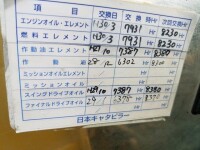 項目 交換日 交換 時間 次回交換
エンジンオイル・エレメント H30-3 7931 Hr 8230 Hr
燃料エレメント H30-3 7931 Hr 8230 Hr
作動油エレメント H29.10 7387 Hr 8380 Hr
作動油 28. 6302 Hr Hr
ミッションオイルエレメント Hr Hr
ミッションオイル Hr Hr
スイングドライブオイル H29.10 7387 Hr 8380 Hr
ファイナルドライブオイル 29.1 6375 Hr Hr
日本キャタピラー